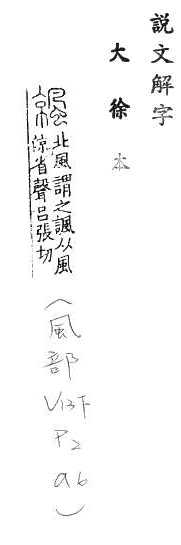 説文解字
大徐本
北風謂之䬙从風
涼省聲呂張切
(風部V13下P2a6)